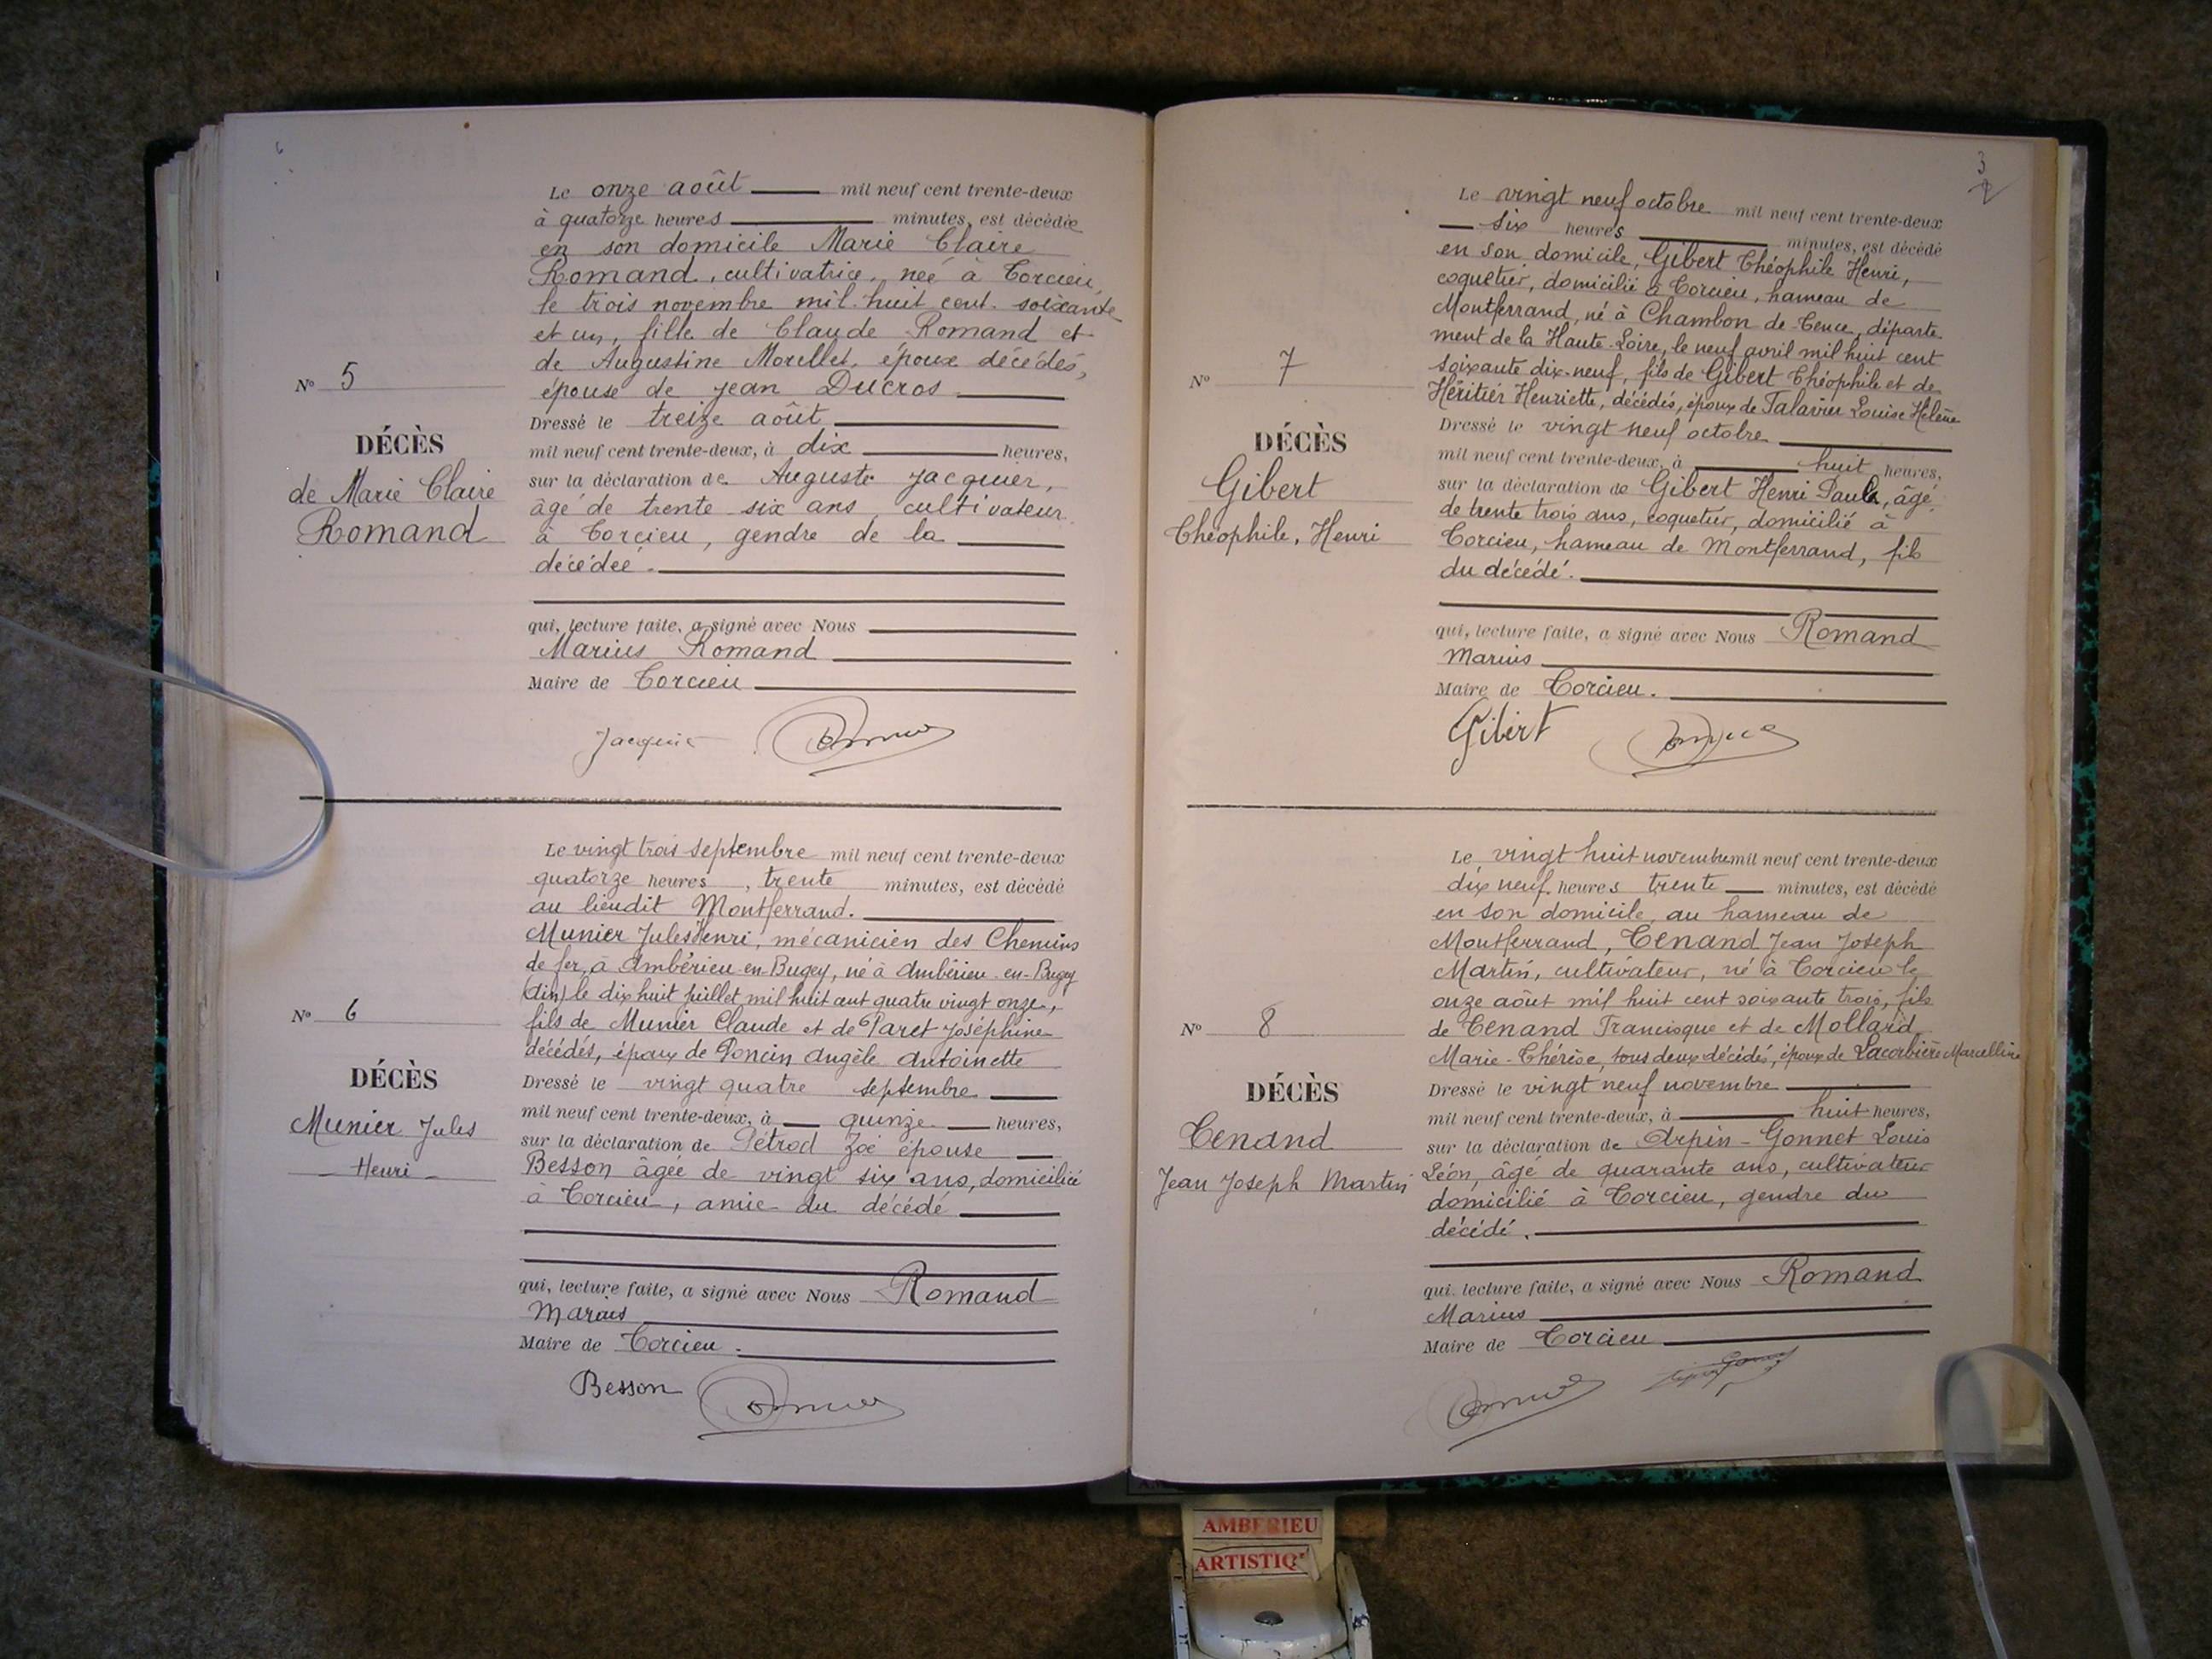 Le onze août mil neuf cent trente-deux
à quatorze heures minutes, est décédée
en son domicile Marie Claire
Romand, cultivatrice, née à Torcieu,
le trois novembre mil huit cent soixante
et un, fille de Claude Romand et
de Augustine Morellet, époux décédés,
épouse de Jean Ducros
Nº 5
Dressé le treize août
DÉCÈS
mil neuf cent trente-deux, à dix heures,
de Marie Claire
sur la déclaration de Auguste Jacquier,
Romand
âgé de trente six ans, cultivateur
à Torcieu, gendre de la
décédée.
qui, lecture faite, a signé avec Nous
Marius Romand
Maire de Torcieu
Jacquier
Le vingt trois septembre mil neuf cent trente-deux
quatorze heures, trente minutes, est décédé
au lieudit Montferrand.
Munier Jules Henri, mécanicien des Chemins
de fer, à Ambérieu-en-Bugey, né à Ambérieu-en-Bugey
(Ain) le dix huit juillet mil huit cent quatre vingt onze,
fils de Munier Claude et de Paret Joséphine
décédés, époux de Poncin Angèle Antoinette
Nº 6
Dressé le vingt quatre septembre
DÉCÈS
mil neuf cent trente-deux, à quinze heures,
Munier Jules
Henri
sur la déclaration de Pétrod Zoé épouse
Besson âgée de vingt six ans, domiciliée
à Torcieu, amie du décédé
qui, lecture faite, a signé avec Nous Romand
Marius
Maire de Torcieu.
Besson
3
Le vingt neuf octobre mil neuf cent trente-deux
six heures minutes, est décédé
en son domicile, Gibert Théophile Henri,
coquetier, domicilié à Torcieu, hameau de
Montferrand, né à Chambon de Tence, départe
ment de la Haute-Loire, le neuf avril mil huit cent
soixante dix-neuf, fils de Gibert Théophile et de
Héritier Henriette, décédés, époux de Talavier Louise Hélène
Nº 7
Dressé le vingt neuf octobre
DÉCÈS
mil neuf cent trente-deux, à huit heures,
Gibert
Théophile, Henri
sur la déclaration de Gibert Henri Paul, âgé
de trente trois ans, coquetier, domicilié à
Torcieu, hameau de Montferrand, fils
du décédé.
qui, lecture faite, a signé avec Nous Romand
Marius
Maire de Torcieu.
Gibert
Le vingt huit novembre mil neuf cent trente-deux
dix neuf heures trente minutes, est décédé
en son domicile, au hameau de
Montferrand, Tenand Jean Joseph
Martin, cultivateur, né à Torcieu le
onze août mil huit cent soixante trois, fils
de Tenand Francisque et de Mollard
Marie-Thérèse, tous deux décédés, époux de Lacorbière Marcelline
Nº 8
Dressé le vingt neuf novembre
DÉCÈS
mil neuf cent trente-deux, à huit heures,
Tenand
Jean Joseph Martin
sur la déclaration de Arpin-Gonnet Louis
Léon, âgé de quarante ans, cultivateur
domicilié à Torcieu, gendre du
décédé.
qui, lecture faite, a signé avec Nous Romand
Marius
Maire de Torcieu
AMBERIEU
ARTISTIQ